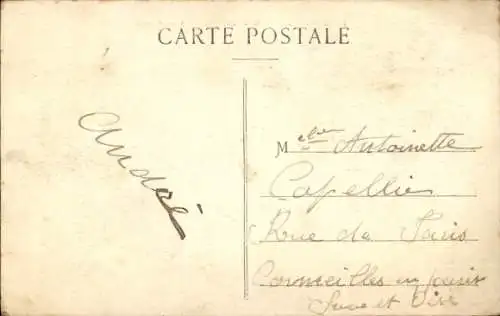 CARTE POSTALE
André
Melle Antoinette
Capellier
Rue de Paris
Cormeilles en parisis
Seine et Oise